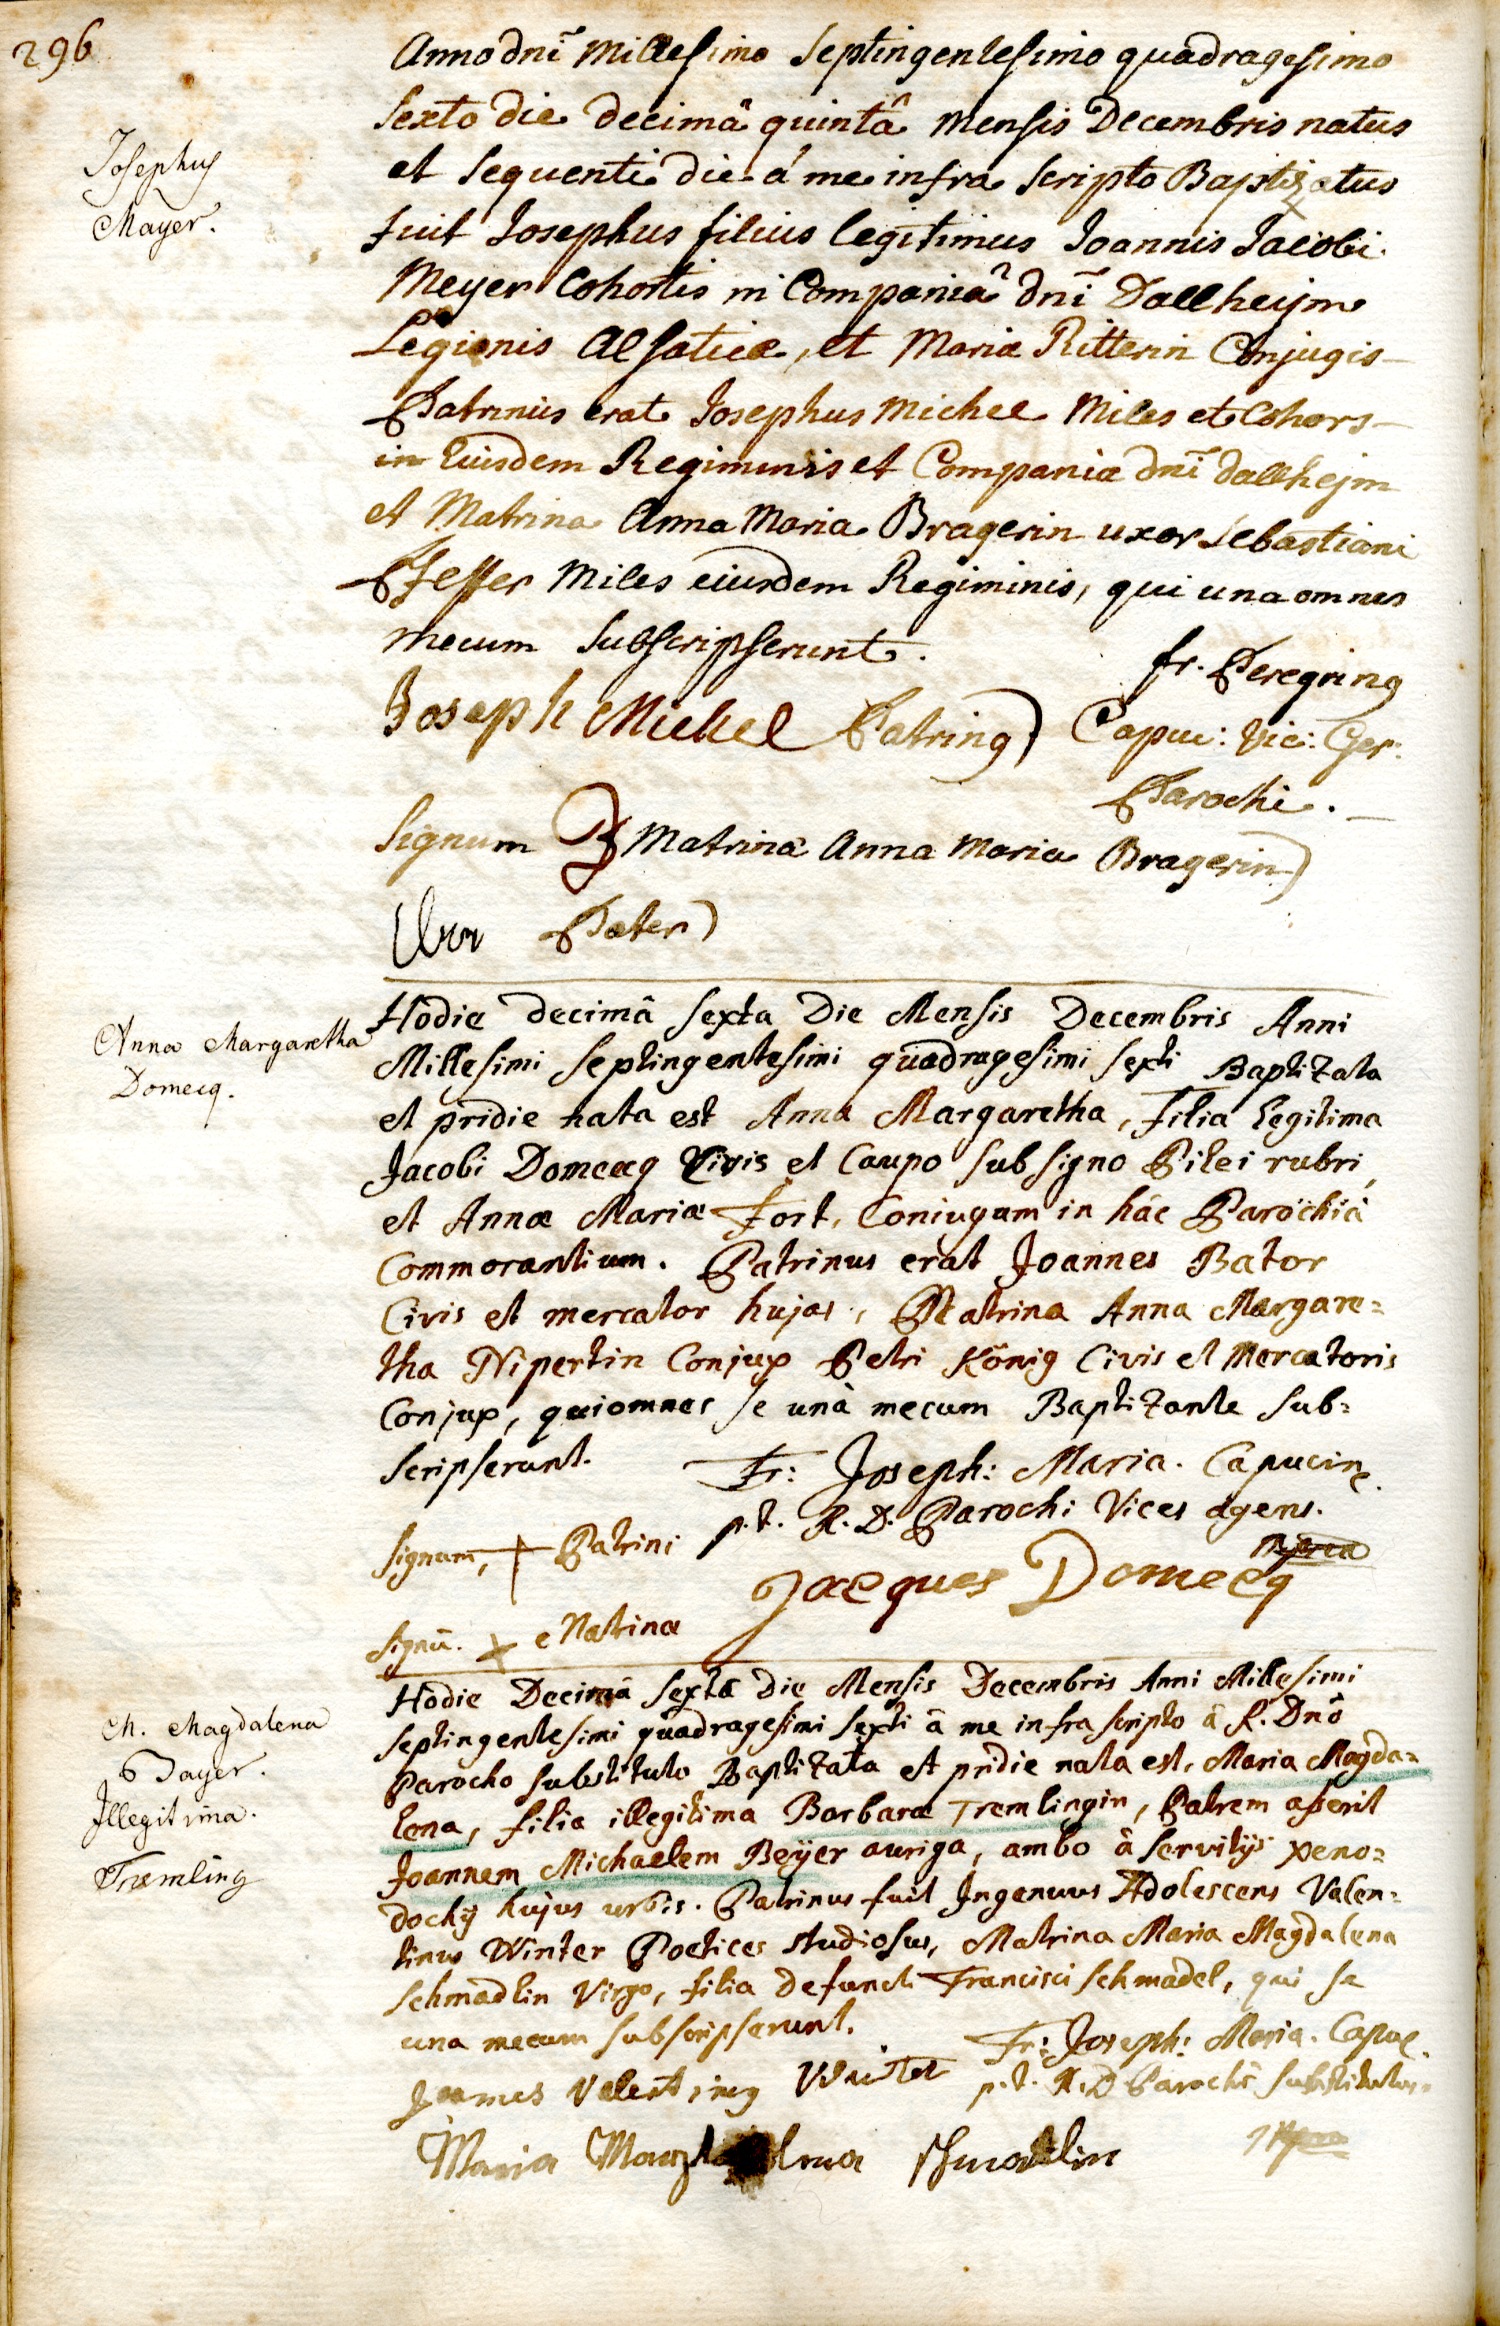 296
Anno dnī Millesimo Septingentesimo quadragesimo
Sexto die decimâ quintâ Mensis Decembris natus
et Sequenti die á me infra scripto Baptizatus
fuit Josephus filius legitimus Joannis Jacobi
Meyer Cohortis in Companiâ dnī Dallheijm
Legionis Alsatiæ, et Mariæ Ritterin Conjugis
Patrinus erat Josephus Michel Miles et Cohors
in Eiusdem Regiminis et Compania dnī Dallhejm
et Matrina Anna Maria Bragerin uxor Sebastiani
Pfeffer Miles eiusdem Regiminis, qui una omnes
mecum Subscripserunt.
Josephus
Mayer.
fr. Peregrin9
Capuc: Vic: Ger:
Parochi.
Joseph Michel Patrin9)
Signum Matrinæ Anna Maria Bragerin)
Pater)
Anna Margaretha
Domecq.
Hodie decimâ Sexta Die Mensis Decembris Anni
Millesimi Septingentesimi quadragesimi Sexti Baptizata
et pridie nata est Anna Margaretha, Filia legitima
Jacobi Domecq Civis et Caupo sub signo Pilei rubri,
et Annæ Mariæ Fort, Coniugum in hác Parochiâ
Commorantium. Patrinus erat Joannes Bator
Civis et mercator hujas, Matrina Anna Margare=
tha Nipertin Conjux Petri König Civis et Mercatoris
Conjux, qui omnes se unà mecum Baptizante Sub=
Scripserunt.
Fr: Joseph: Maria. Capucin9.
p.t. R. D. Parochi Vices agens.
mpria
Signum, + Patrini
Jacques Domecq
Signū. x Matrinæ
M. Magdalena
Bayer.
Illegitima.
Træmling
Hodie Decimâ Sextâ Die Mensis Decembris Anni Millesimi
Septingentesimi quadragesimi Sexti â me infra scripto â R. Dnō
Parocho Substituto Baptizata et pridie nata est, Maria Magda=
lena, filia illegitima Barbaræ Tremlingin, Patrem asserit
Joannem Michaelem Beÿer auriga, ambo â servitijs xeno=
dochij hujus urbis. Patrinus fuit Ingenuus Adolescens Valen=
tinus Winter Poetices studiosus, Matrina Maria Magdalena
Schmadlin Virgo, filia defuncti Francisci Schmadel, qui se
una mecum subscripserunt.
Fr: Joseph: Maria. Capuc.
p.t. R. D Parochi Substitutus
mpria
Joannes Valentinus Winter
Maria Schmadlin